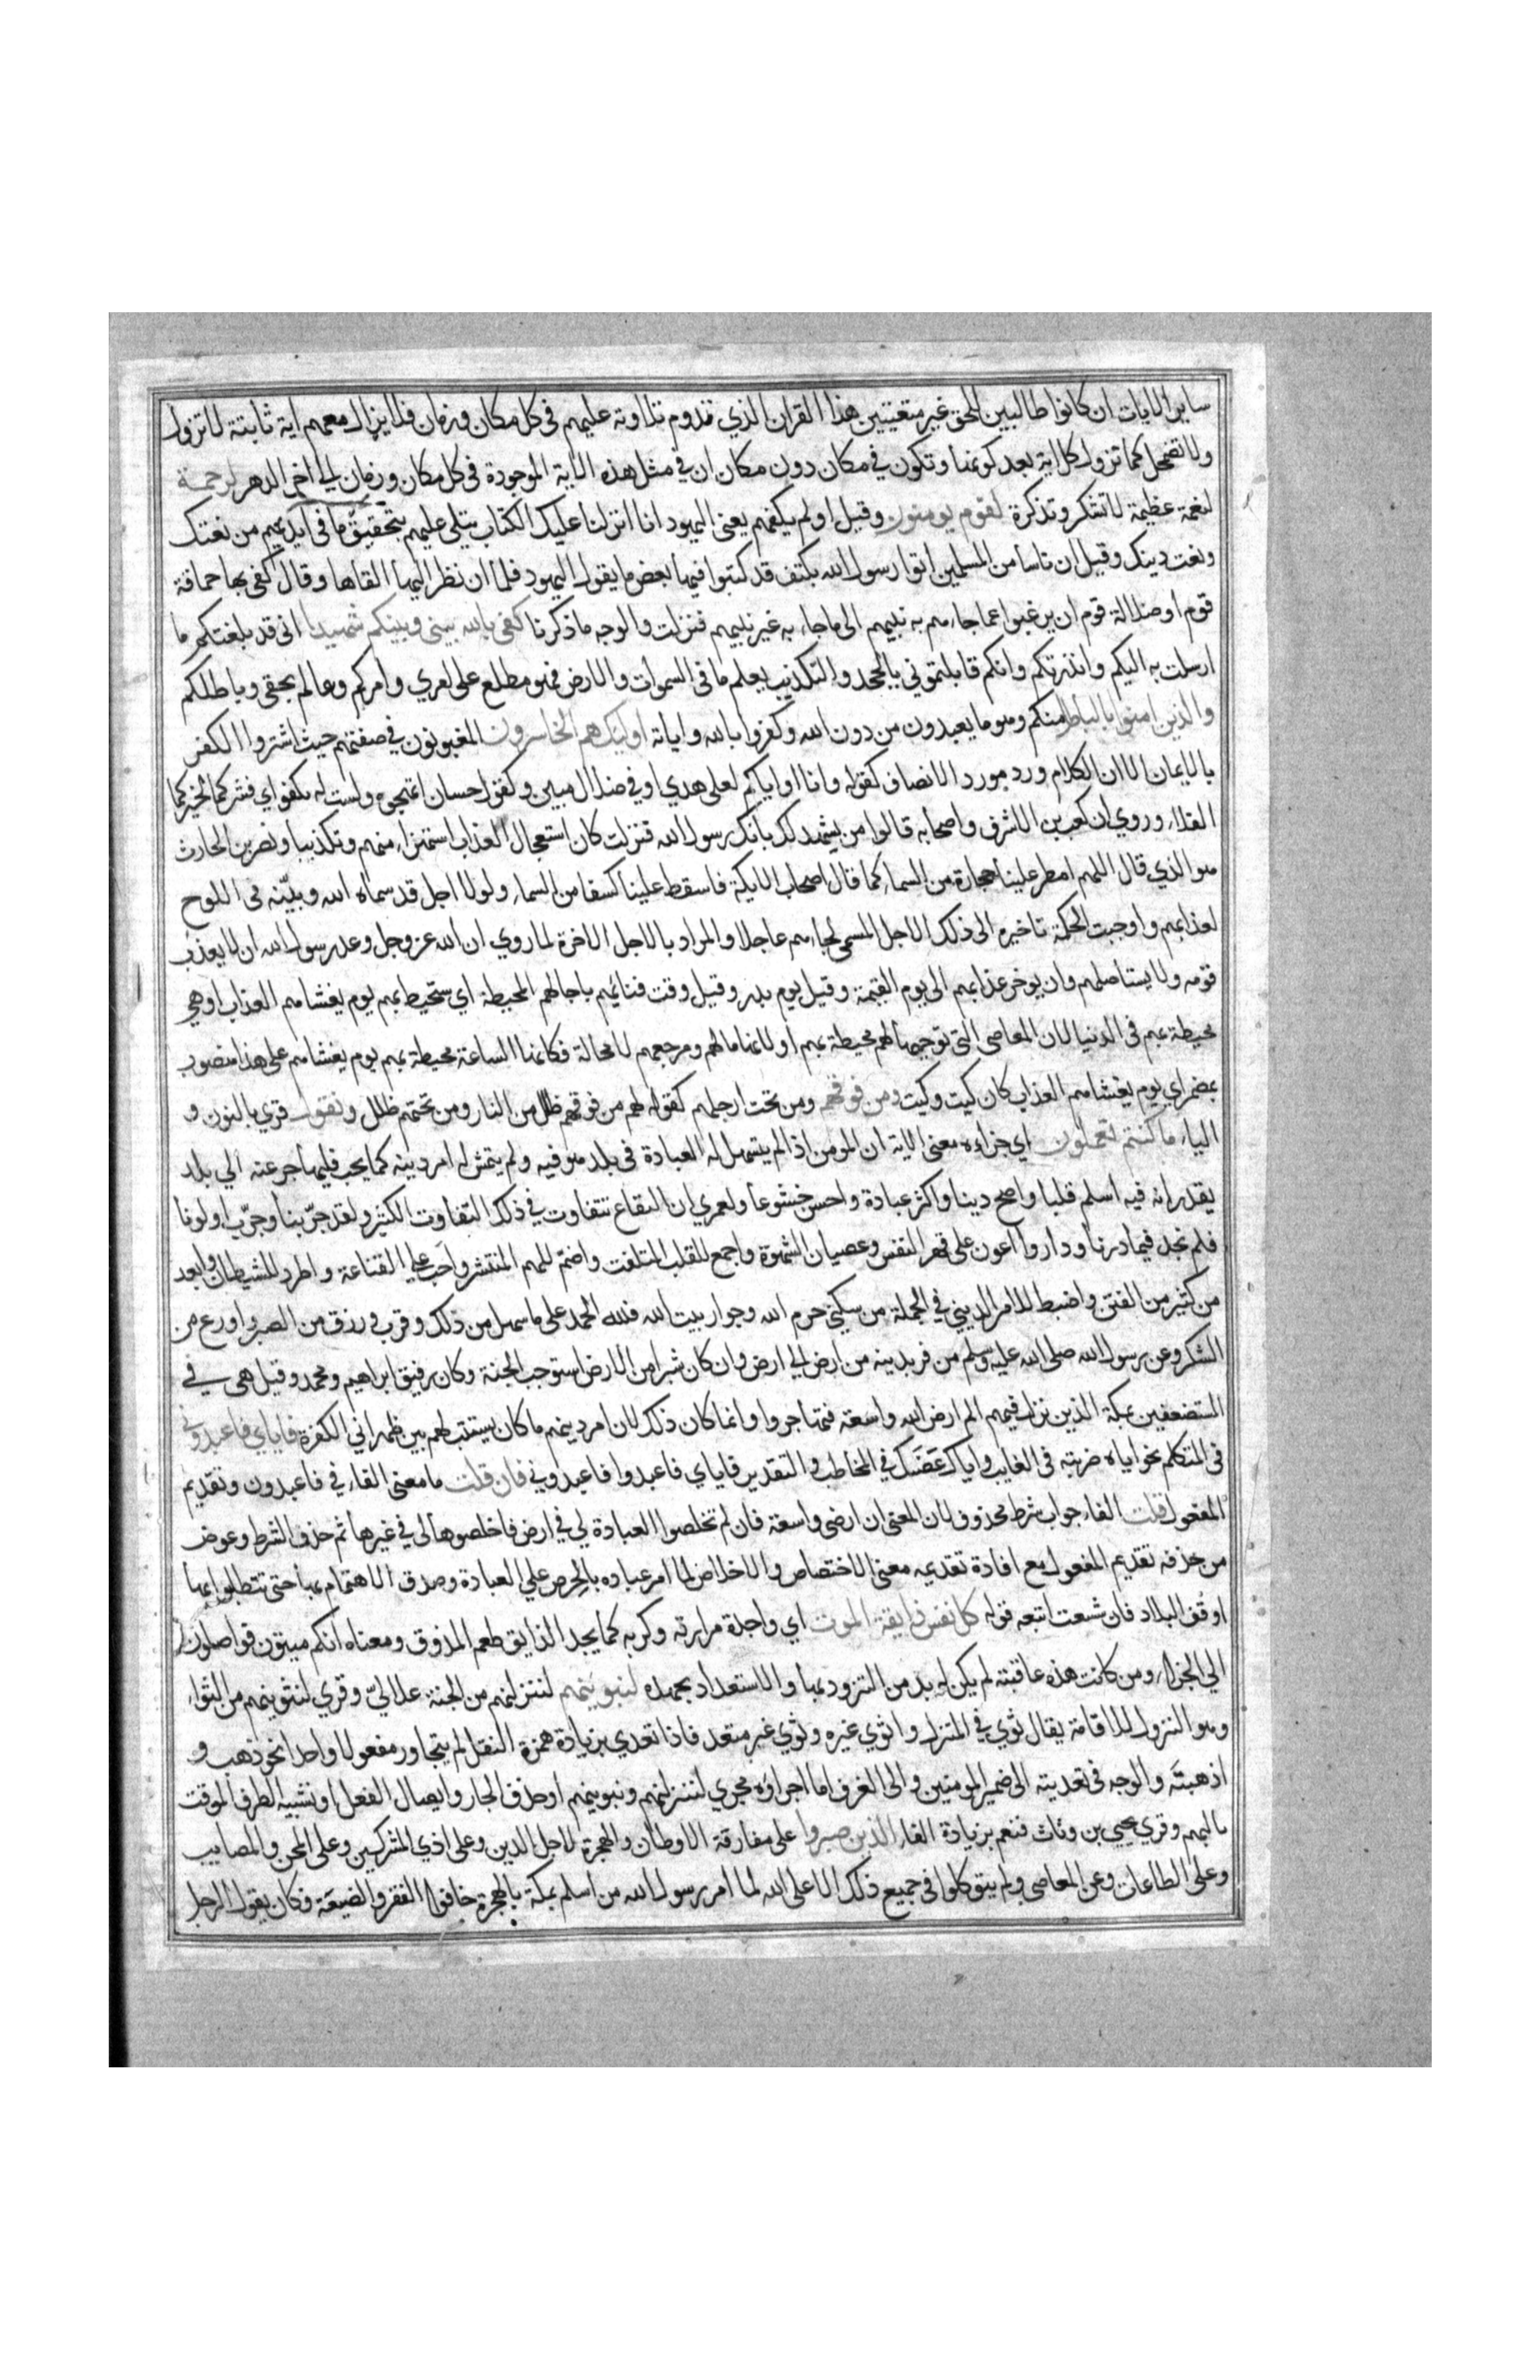 ساير الايات ان كانوا طالبين للحق غير متعنتين هذا القران الذي تدوم تلاوته عليهم فى كل مكان وزمان فلا يزال معهم اية ثابتة لا تزول
ولا تضمحل كما تزول كل اية بعد كونها وتكون في مكان دون مكان ان في مثل هذه الاية الموجودة فى كل مكان وزمان الي اخر الدهر لرحمة
لنعمة عظيمة لا تشكر وتذكرة لقوم يومنون وقيل اولم يكفهم يعنى اليهود انا انزلنا عليك الكتاب يتلى عليهم بتحقيق ما فى ايديهم من نعتك
ونعت دينك وقيل ان ناسا من المسلمين اتوا رسول الله بكتف قد كتبوا فيها بعض ما يقول اليهود فلما ان نظر اليها القاها وقال كفى بها حماقة
قوم او ضلالة قوم ان يرغبوا عما جاءهم به نبيهم الى ما جاء به غير نبيهم فنزلت والوجه ما ذكرنا كفى بالله بينى وبينكم شهيدا انى قد بلغتكم ما
ارسلت به اليكم وانذرتكم وانكم قابلتموني بالجحد والتكذيب يعلم ما فى السموات والارض فهو مطلع على امري وامركم وعالم بحقى وباطلكم
والذين امنوا بالباطل منكم وهو ما يعبدون من دون الله وكفروا بالله واياته اوليك هم الخاسرون المغبونون في صفقتهم حيث اشتروا الكفر
بالايمان الا ان الكلام ورد مورد الانصاف كقوله وانا او اياكم لعلى هدي او في ضلال مبين وكقول حسان اتهجوه ولست له بكفو اي فشركما لخيركما
الفداء وروي ان كعب بن الاشرف واصحابه قالوا من يشهد لك بانك رسول الله فنزلت كان استعجال العذاب استهزاء منهم وتكذيبا ونضر بن الحارث
هو الذي قال اللهم امطر علينا حجارة من السماء كما قال اصحاب الايكة فاسقط علينا كسفا من السماء ولولا اجل قد سماه الله وبيّنه فى اللوح
لعذابهم واوجبت الحكمة تاخيره الى ذلك الاجل المسمى لجاءهم عاجلا والمراد بالاجل الاخرة لما روي ان الله عز وجل وعد رسول الله ان لا يعذب
قومه ولا يستاصلهم وان يوخر عذابهم الى يوم القيمة وقيل يوم بدر وقيل وقت فنائهم باجالهم لمحيطة اي ستحيط بهم يوم يغشاهم العذاب او هي
محيطة بهم فى الدنيا لان المعاصى التى توجبها لهم محيطة بهم او لانها مالهم ومرجعهم لا محالة فكانما الساعة محيطة بهم يوم يغشاهم على هذا منصوب
بمضمر اي يوم يغشاهم العذاب كان كيت وكيت ومن فوقهم ومن تحت ارجلهم كقوله لهم من فوقهم ظلل من النار ومن تحتهم ظلل ونقول قري بالنون و
الياء ما كنتم تعملون اي جزاءه معنى الاية ان المومن اذا لم يتسهل له العبادة فى بلد هو فيه ولم يتمش له امر دينه كما يجب فليهاجر عنه الي بلد
يقدر انه فيه اسلم قلبا واصح دينا واكثر عبادة واحسن خشوعا ولعمري ان البقاع تتفاوت في ذلك التفاوت الكثير ولقد جرّبنا وجرّب اولونا
فلم نجد فيما درنا وداروا اعون على قهر النفس وعصيان الشهوة واجمع للقلب المتلفت واضمّ للهم المنتشر واحث على القناعة واطرد للشيطان وابعد
من كثير من الفتن واضبط للامر الديني في الجملة من سكنى حرم الله وجوار بيت الله فلله الحمد على ما سهل من ذلك وقرب ورزق من الصبر واوزع من
الشكر وعن رسول الله صلى الله عليه وسلم من فر بدينه من ارض الي ارض وان كان شبرا من الارض استوجب الجنة وكان رفيق ابراهيم ومحمد وقيل هى في
المستضعفين بمكة الذين نزل فيهم الم ارض الله واسعة فتهاجروا وانما كان ذلك لان امر دينهم ما كان يستتب لهم بين ظهراني الكفرة فاياي فاعبدوني
فى المتكلم نحو اياه ضربته فى الغايب واياك عضتك في المخاطب والتقدير فاياي فاعبدوا فاعبدوني فان قلت ما معنى الفاء في فاعبدون وتقديم
المفعول قلت الفاء جواب شرط محذوف لان المعنى ان ارضى واسعة فان لم تخلصوا العبادة لي في ارض فاخلصوها لى في غيرها ثم حذف الشرط وعوض
من حذفه تقديم المفعول مع افادة تقديمه معنى الاختصاص والاخلاص لما امر عباده بالحرص علي العبادة وصدق الاهتمام بها حتى يتطلبوا لها
اوفق البلاد فان شسعت اتبعه قوله كل نفس ذايقة الموت اي واجدة مرارته وكربه كما يجد الذايق طعم المذوق ومعناه انكم ميتون فواصلون
الي الجزاء ومن كانت هذه عاقبته لم يكن له بد من التزود لها والاستعداد بجهده لنبوينهم لننزلنهم من الجنة علاليّ وقري لنثوينهم من الثواء
وهو النزول للاقامة يقال ثوي في المنزل واثوي غيره وثوي غير متعد فاذا تعدي بزيادة همزة النقل لم يتجاوز مفعولا واحدا نحو ذهب و
اذهبته والوجه فى تعديته الى ضمير المومنين والى الغرف اما اجراؤه مجري لننزلنهم ونبوينهم او حذف الجار وايصال الفعل او تشبيه الظرف الموقت
بالمبهم وقري يحيي بن وثاب فنعم بزيادة الفاء الذين صبروا على مفارقة الاوطان والهجرة لاجل الدين وعلى اذي المشركين وعلى المحن والمصايب
وعلى الطاعات وعن المعاصى ولم يتوكلوا فى جميع ذلك الا على الله لما امر رسول الله من اسلم بمكة بالهجرة خافوا الفقر والضيعة فكان يقول الرجل